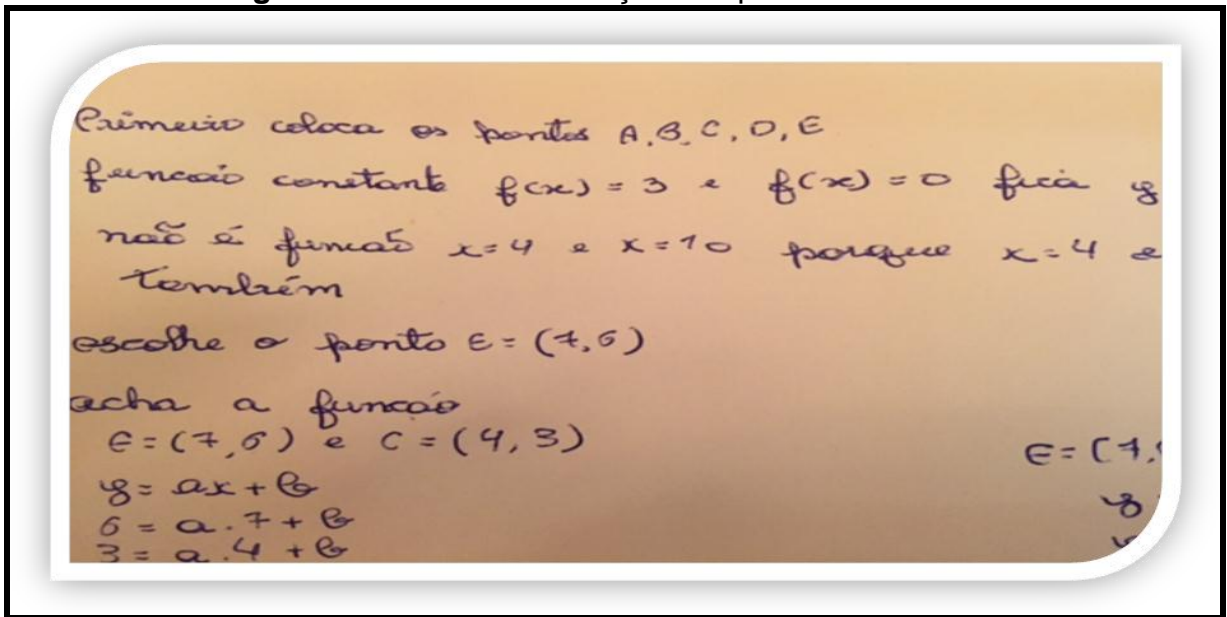 Primeiro coloca os pontos A, B, C, D, E
funcão constante f(x) = 3 e f(x) = 0 fica y
não é funcão x=4 e x=10 porque x=4 e
também
escolhe o ponto E = (7,6)
acha a funcão
E = (7,6) e C = (4,3)
E = (7,
y = ax + b
y
6 = a.7 + b
3 = a.4 + b